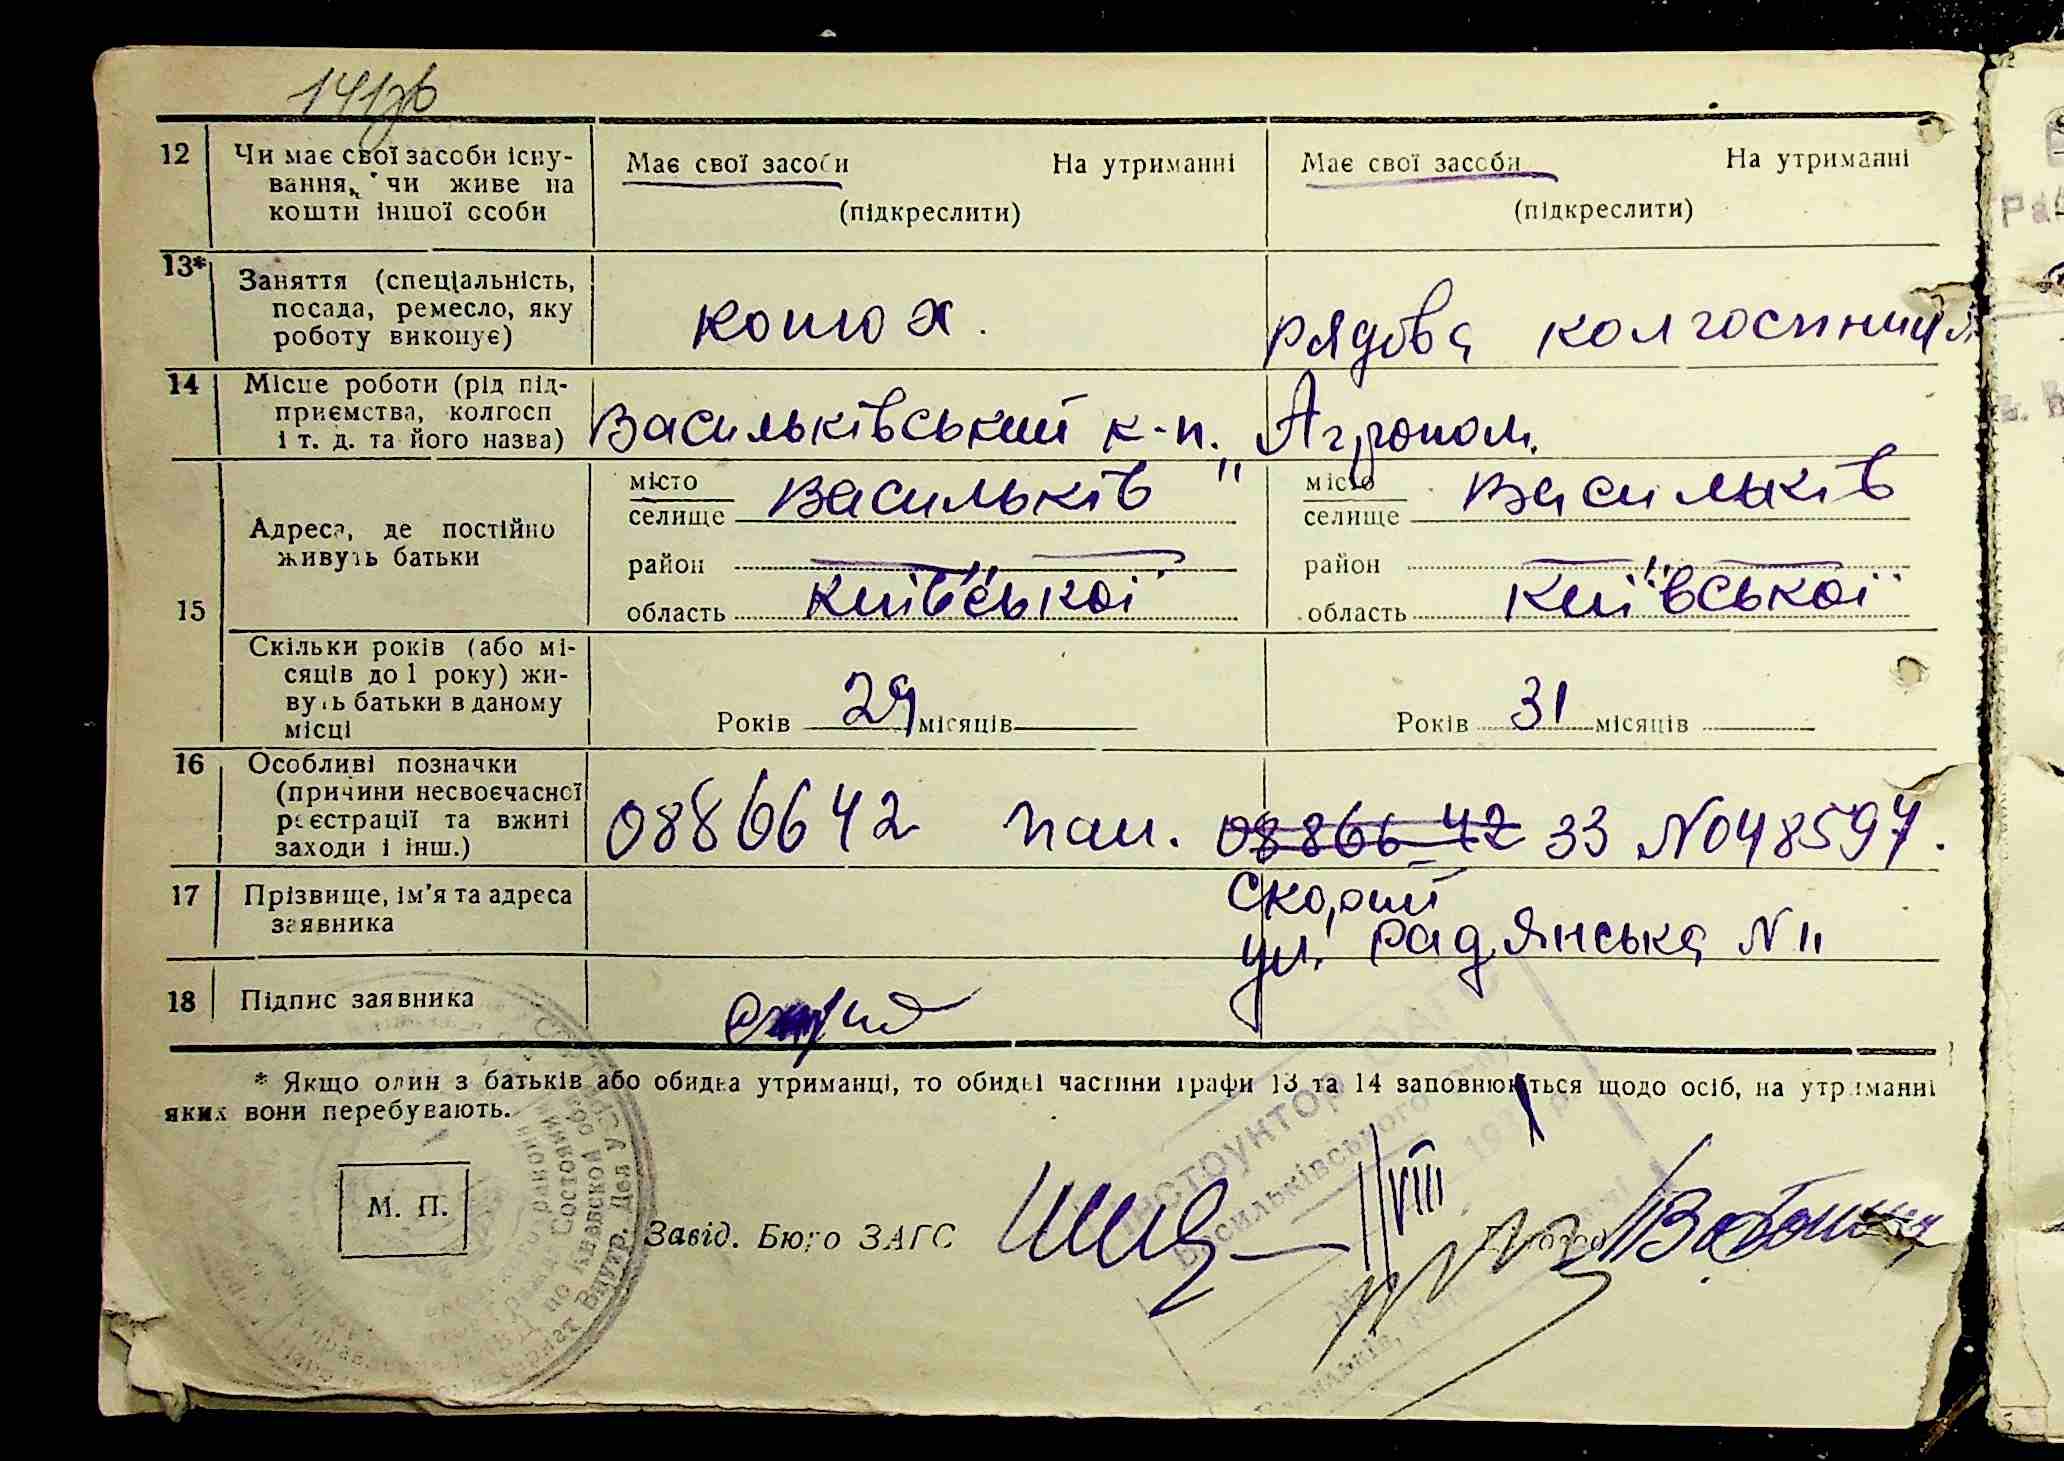 141зв
12 Чи має свої засоби існу-
вання, чи живе на
кошти іншої особи
Має свої засоби На утриманні
(підкреслити)
Має свої засоби На утриманні
(підкреслити)
13* Заняття (спеціальність,
посада, ремесло, яку
роботу виконує)
конюх.
рядова колгоспниця
14 Місце роботи (рід під-
приємства, колгосп
і т. д. та його назва)
Васильківський к-п. Агроном.
15 Адреса, де постійно
живуть батьки
місто
селище Васильків
район
область Київської
місто
селище Васильків
район
область Київської
Скільки років (або мі-
сяців до 1 року) жи-
вуть батьки в даному
місці
Років 29 місяців
Років 31 місяців
16 Особливі позначки
(причини несвоєчасної
реєстрації та вжиті
заходи і інш.)
0886642 паш. 0886642 33 №048597.
17 Прізвище, ім'я та адреса
заявника
Скорий
ул. Радянська N 11
18 Підпис заявника
* Якщо один з батьків або обидва утриманці, то обидві частини графи 13 та 14 заповнюються щодо осіб, на утриманні
яких вони перебувають.
М. П.
Завід. Бюро ЗАГС
1/VIII
Інструктор ОАГС
Васильківського